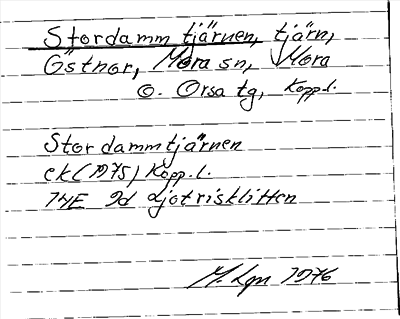 Stordammtjärnen, tjärn,
Östnor, Mora sn, Mora
o. Orsa tg, Kopp.l.
Stordammtjärnen
ek (1975) Kopp.l.
14E 9d Ljotrisklitten
M. Lgn 1976